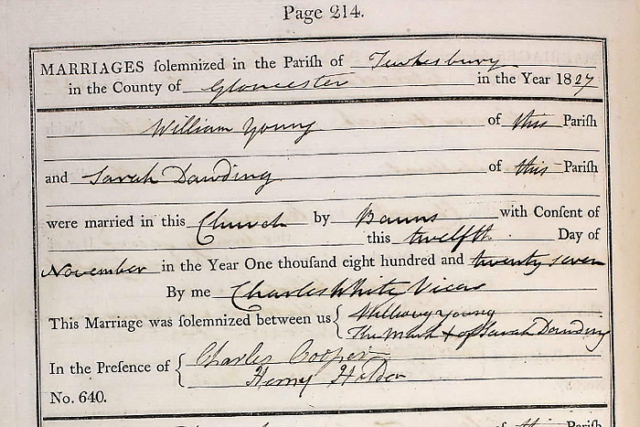 Page 214.
MARRIAGES solemnized in the Parish of Tewkesbury
in the County of Gloucester in the Year 1827
William Young of this Parish
and Sarah Dawding of this Parish
were married in this Church by Banns with Consent of
this twelfth Day of
November in the Year One thousand eight hundred and twenty seven
By me Charles White Vicar
This Marriage was solemnized between us { William Young
The Mark + of Sarah Dawding
In the Presence of { Charles Cooper
Henry
No. 640.
of this Parish